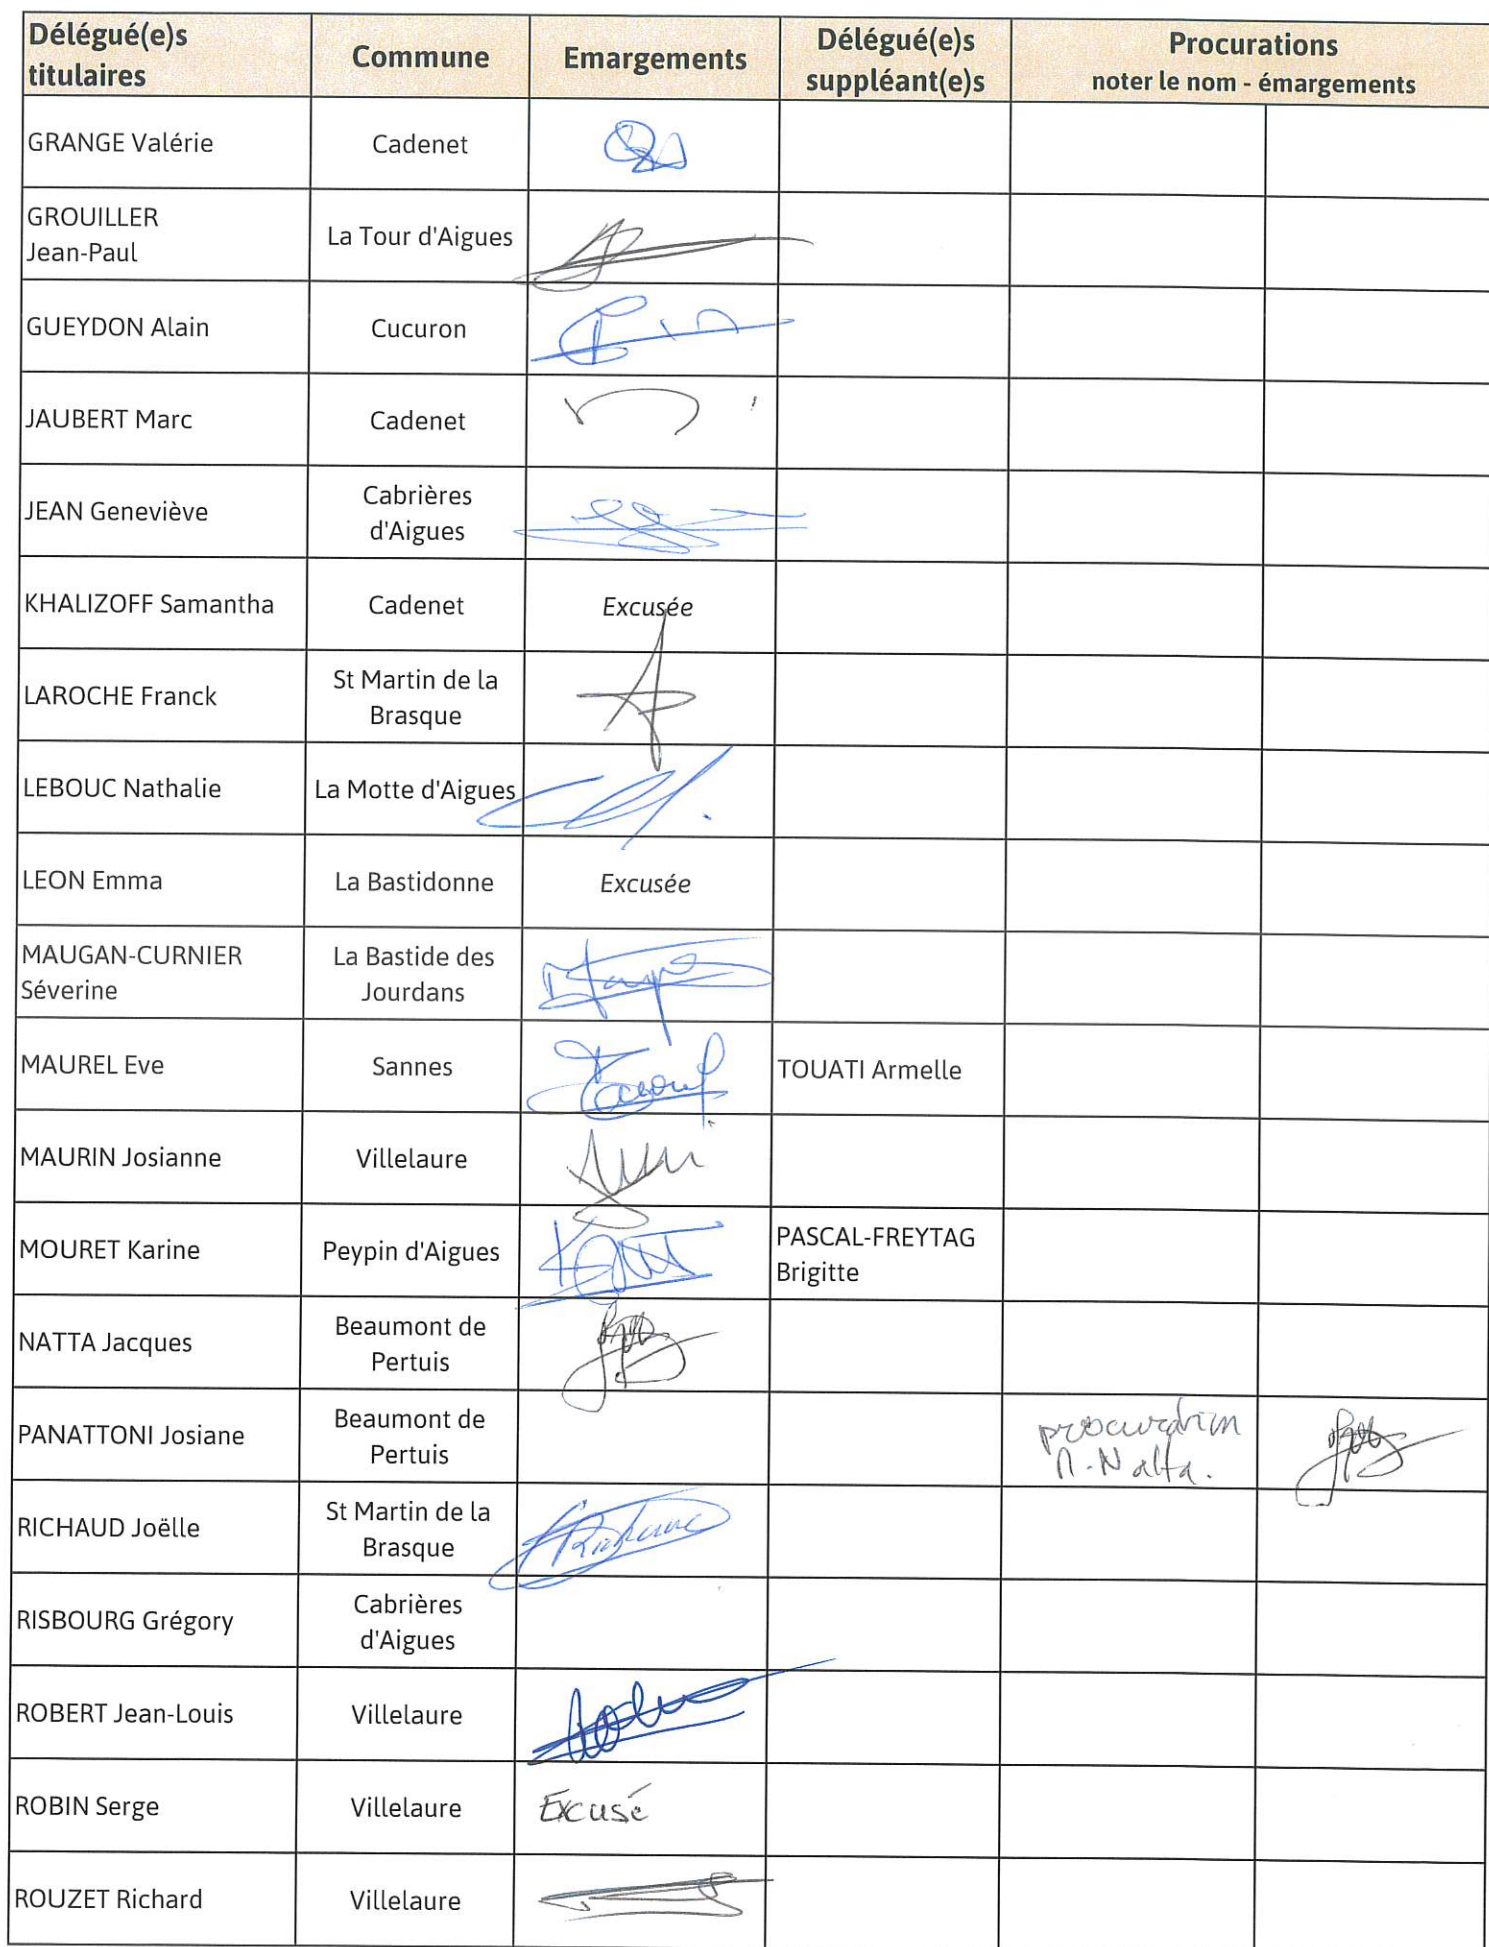 Délégué(e)s
titulaires
Commune
Emargements
Délégué(e)s
suppléant(e)s
Procurations
noter le nom - émargements
GRANGE Valérie
Cadenet
GROUILLER
Jean-Paul
La Tour d'Aigues
GUEYDON Alain
Cucuron
JAUBERT Marc
Cadenet
JEAN Geneviève
Cabrières
d'Aigues
KHALIZOFF Samantha
Cadenet
Excusée
LAROCHE Franck
St Martin de la
Brasque
LEBOUC Nathalie
La Motte d'Aigues
LEON Emma
La Bastidonne
Excusée
MAUGAN-CURNIER
Séverine
La Bastide des
Jourdans
MAUREL Eve
Sannes
TOUATI Armelle
MAURIN Josianne
Villelaure
MOURET Karine
Peypin d'Aigues
PASCAL-FREYTAG
Brigitte
NATTA Jacques
Beaumont de
Pertuis
PANATTONI Josiane
Beaumont de
Pertuis
procuration
M. Natta.
RICHAUD Joëlle
St Martin de la
Brasque
RISBOURG Grégory
Cabrières
d'Aigues
ROBERT Jean-Louis
Villelaure
ROBIN Serge
Villelaure
Excusé
ROUZET Richard
Villelaure